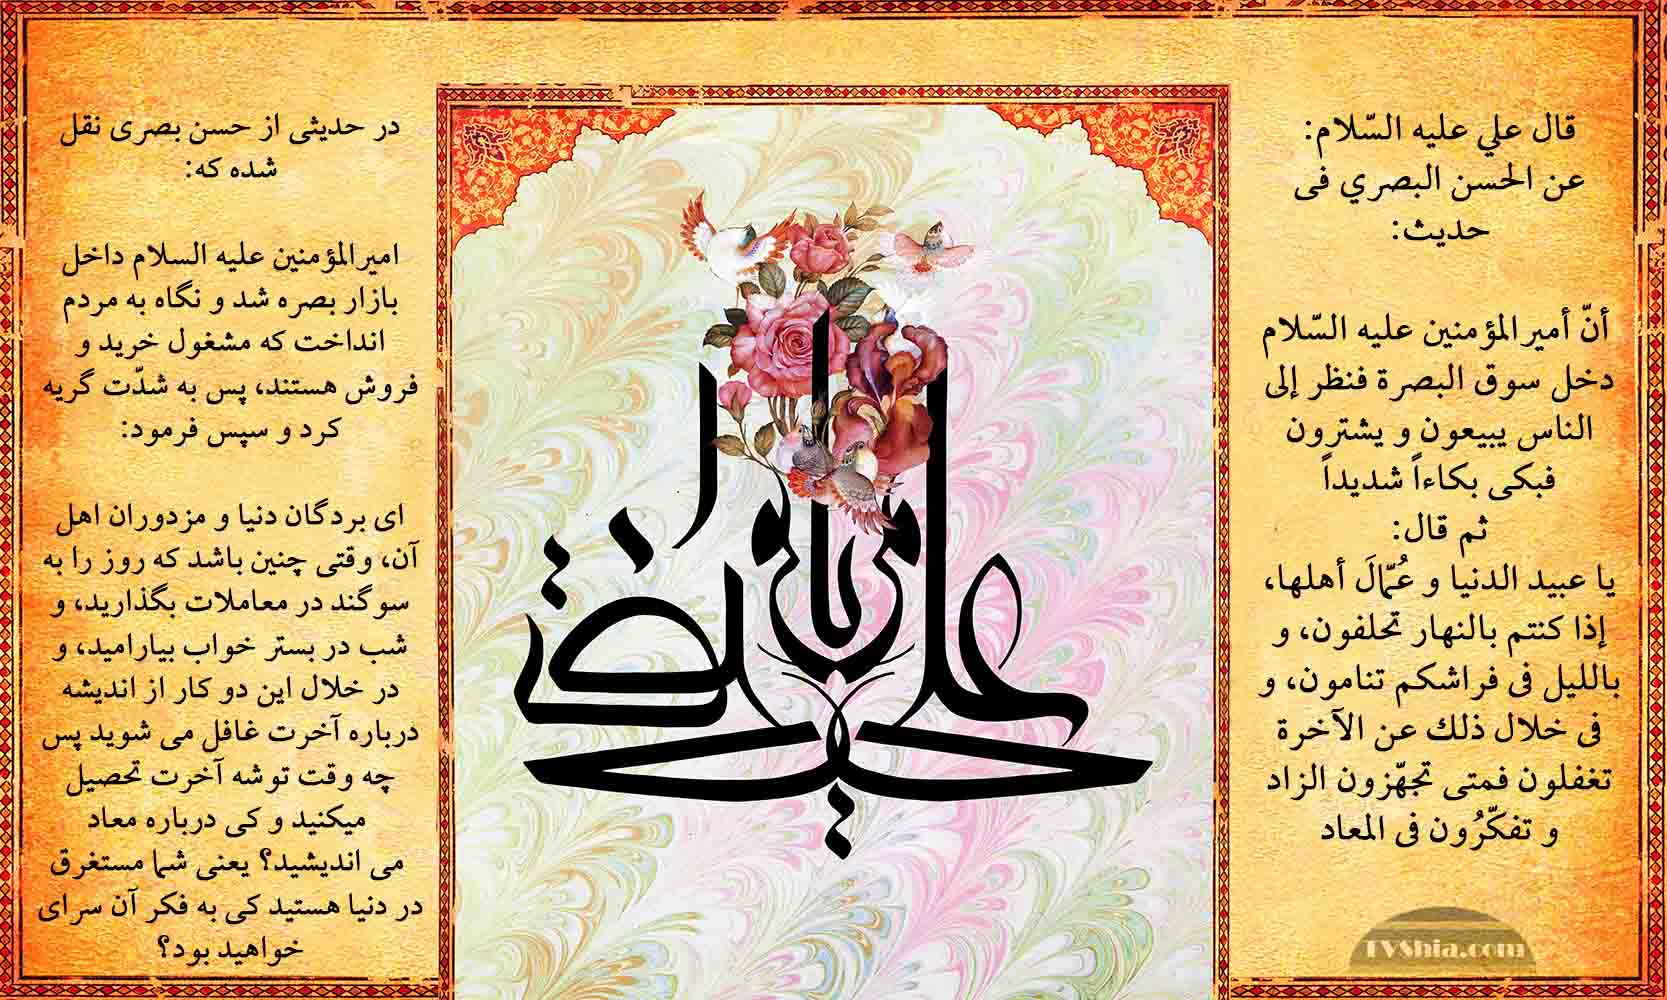 قال علي عليه السّلام:
عن الحسن البصري فی
حديث:
أنّ أميرالمؤمنين عليه السّلام
دخل سوق البصرة فنظر إلى
الناس يبيعون و يشترون
فبكى بكاءاً شديداً
ثم قال:
يا عبيد الدنيا و عُمّالَ أهلها،
إذا كنتم بالنهار تحلفون، و
بالليل فی فراشكم تنامون، و
فی خلال ذلك عن الآخرة
تغفلون فمتى تجهّزون الزاد
و تفكّرُون فی المعاد
یا علی
مرتضی
در حدیثی از حسن بصری نقل
شده که:
امیرالمؤمنین علیه السلام داخل
بازار بصره شد و نگاه به مردم
انداخت که مشغول خرید و
فروش هستند، پس به شدّت گریه
کرد و سپس فرمود:
ای بردگان دنیا و مزدوران اهل
آن، وقتی چنین باشد که روز را به
سوگند در معاملات بگذارید، و
شب در بستر خواب بیارامید، و
در خلال این دو کار از اندیشه
درباره آخرت غافل می شوید پس
چه وقت توشه آخرت تحصیل
میکنید و کی درباره معاد
می اندیشید؟ یعنی شما مستغرق
در دنیا هستید کی به فکر آن سرای
خواهید بود؟
TVShia.com